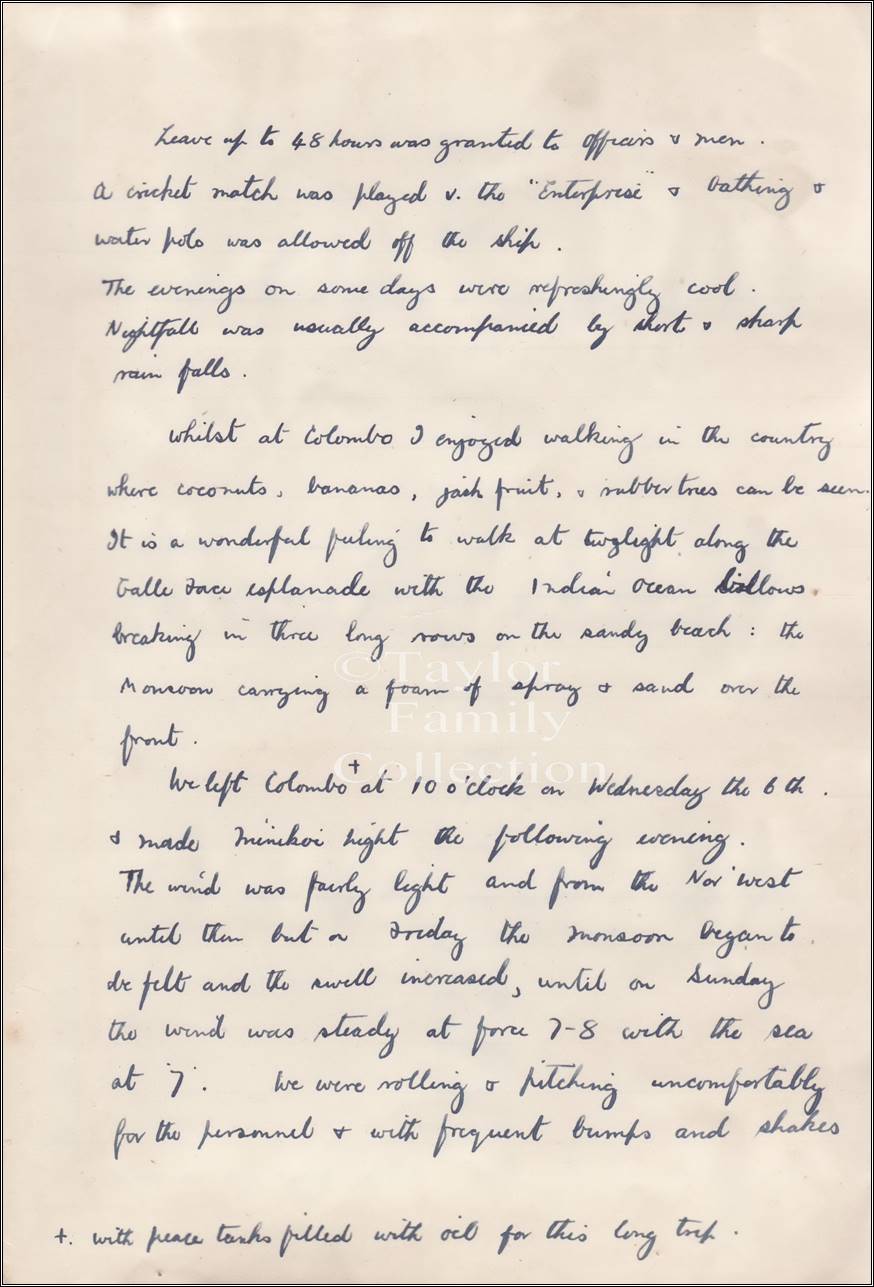 Leave up to 48 hours was granted to officers & men .
A cricket match was played v. the "Enterprise" & bathing &
water polo was allowed off the ship .
The evenings on some days were refreshingly cool .
Nightfall was usually accompanied by short & sharp
rain falls .
Whilst at Colombo I enjoyed walking in the country
where coconuts, bananas, jack fruit, & rubber trees can be seen.
It is a wonderful feeling to walk at twylight along the
Galle Face esplanade with the Indian Ocean billows
breaking in three long rows on the sandy beach : the
Monsoon carrying a foam of spray & sand over the
front .
We left Colombo + at 10 o'clock on Wednesday the 6th .
& made Minikoi light the following evening .
The wind was fairly light and from the Nor' West
until then but on Friday the monsoon began to
be felt and the swell increased, until on Sunday
the wind was steady at force 7-8 with the sea
at '7'. We were rolling & pitching uncomfortably
for the personnel & with frequent bumps and shakes
+. with peace tanks filled with oil for this long trip .
©Taylor
Family
Collection